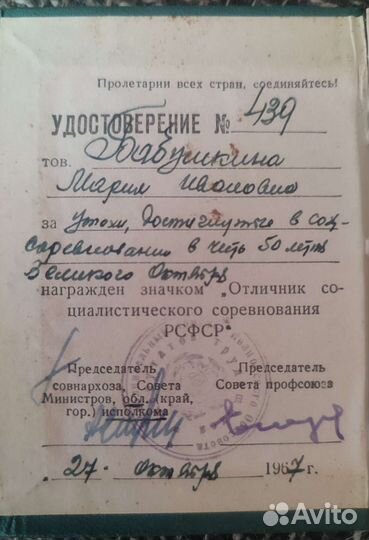 Пролетарии всех стран, соединяйтесь!
УДОСТОВЕРЕНИЕ № 439
тов. Бабушкина
Мария Ивановна
за успехи, достигнутые в соц-
соревновании в честь 50 летия
Великого Октября
награжден значком „Отличник со-
циалистического соревнования
РСФСР"
Председатель
совнархоза, Совета
Министров, обл. (край,
гор.) исполкома
Председатель
Совета профсоюза
„27" Октября 1967 г.
Avito